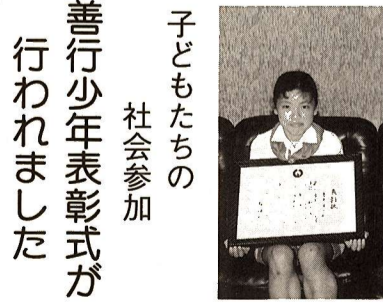 子どもたちの
社会参加
善行少年表彰式が
行われました
表彰状